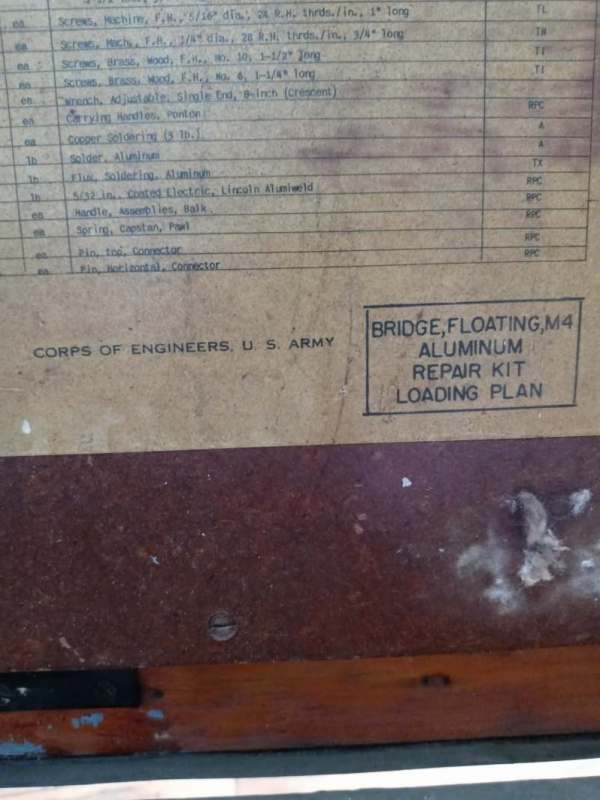 ea Screws, Machine, F.H., 5/16" dia., 24 R.H. thrds./in., 1" long TL
ea Screws, Mach., F.H., 1/4" dia., 20 R.H. thrds./in., 3/4" long TH
ea Screws, Brass, Wood, F.H., No. 10, 1-1/2" long TI
ea Screws, Brass, Wood, F.H., No. 6, 1-1/4" long TI
ea Wrench, Adjustable, Single End, 8-inch (Crescent)
ea Carrying Handles, Ponton RPC
ea Copper Soldering (3 lb.) A
lb Solder, Aluminum A
lb Flux, Soldering, Aluminum TX
lb 5/32 in., Coated Electric, Lincoln Alumiweld RPC
ea Handle, Assemblies, Balk RPC
ea Spring, Capstan, Pawl RPC
ea Pin, top, Connector RPC
ea Pin, Horizontal, Connector RPC
CORPS OF ENGINEERS, U. S. ARMY
BRIDGE,FLOATING,M4
ALUMINUM
REPAIR KIT
LOADING PLAN